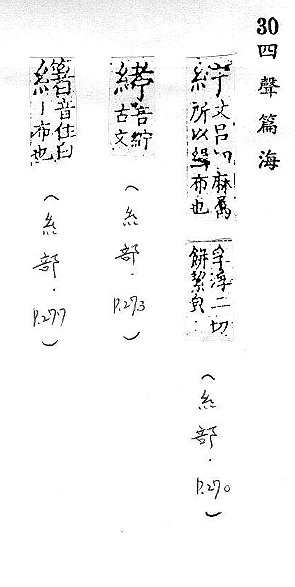 30 四聲篇海
紵 丈呂切麻屬
所以緝布也
二切
餅絮皃
(糸部.P.270)
音紵
古文
(糸部.P.273)
音住白
丨布也
(糸部.P.277)